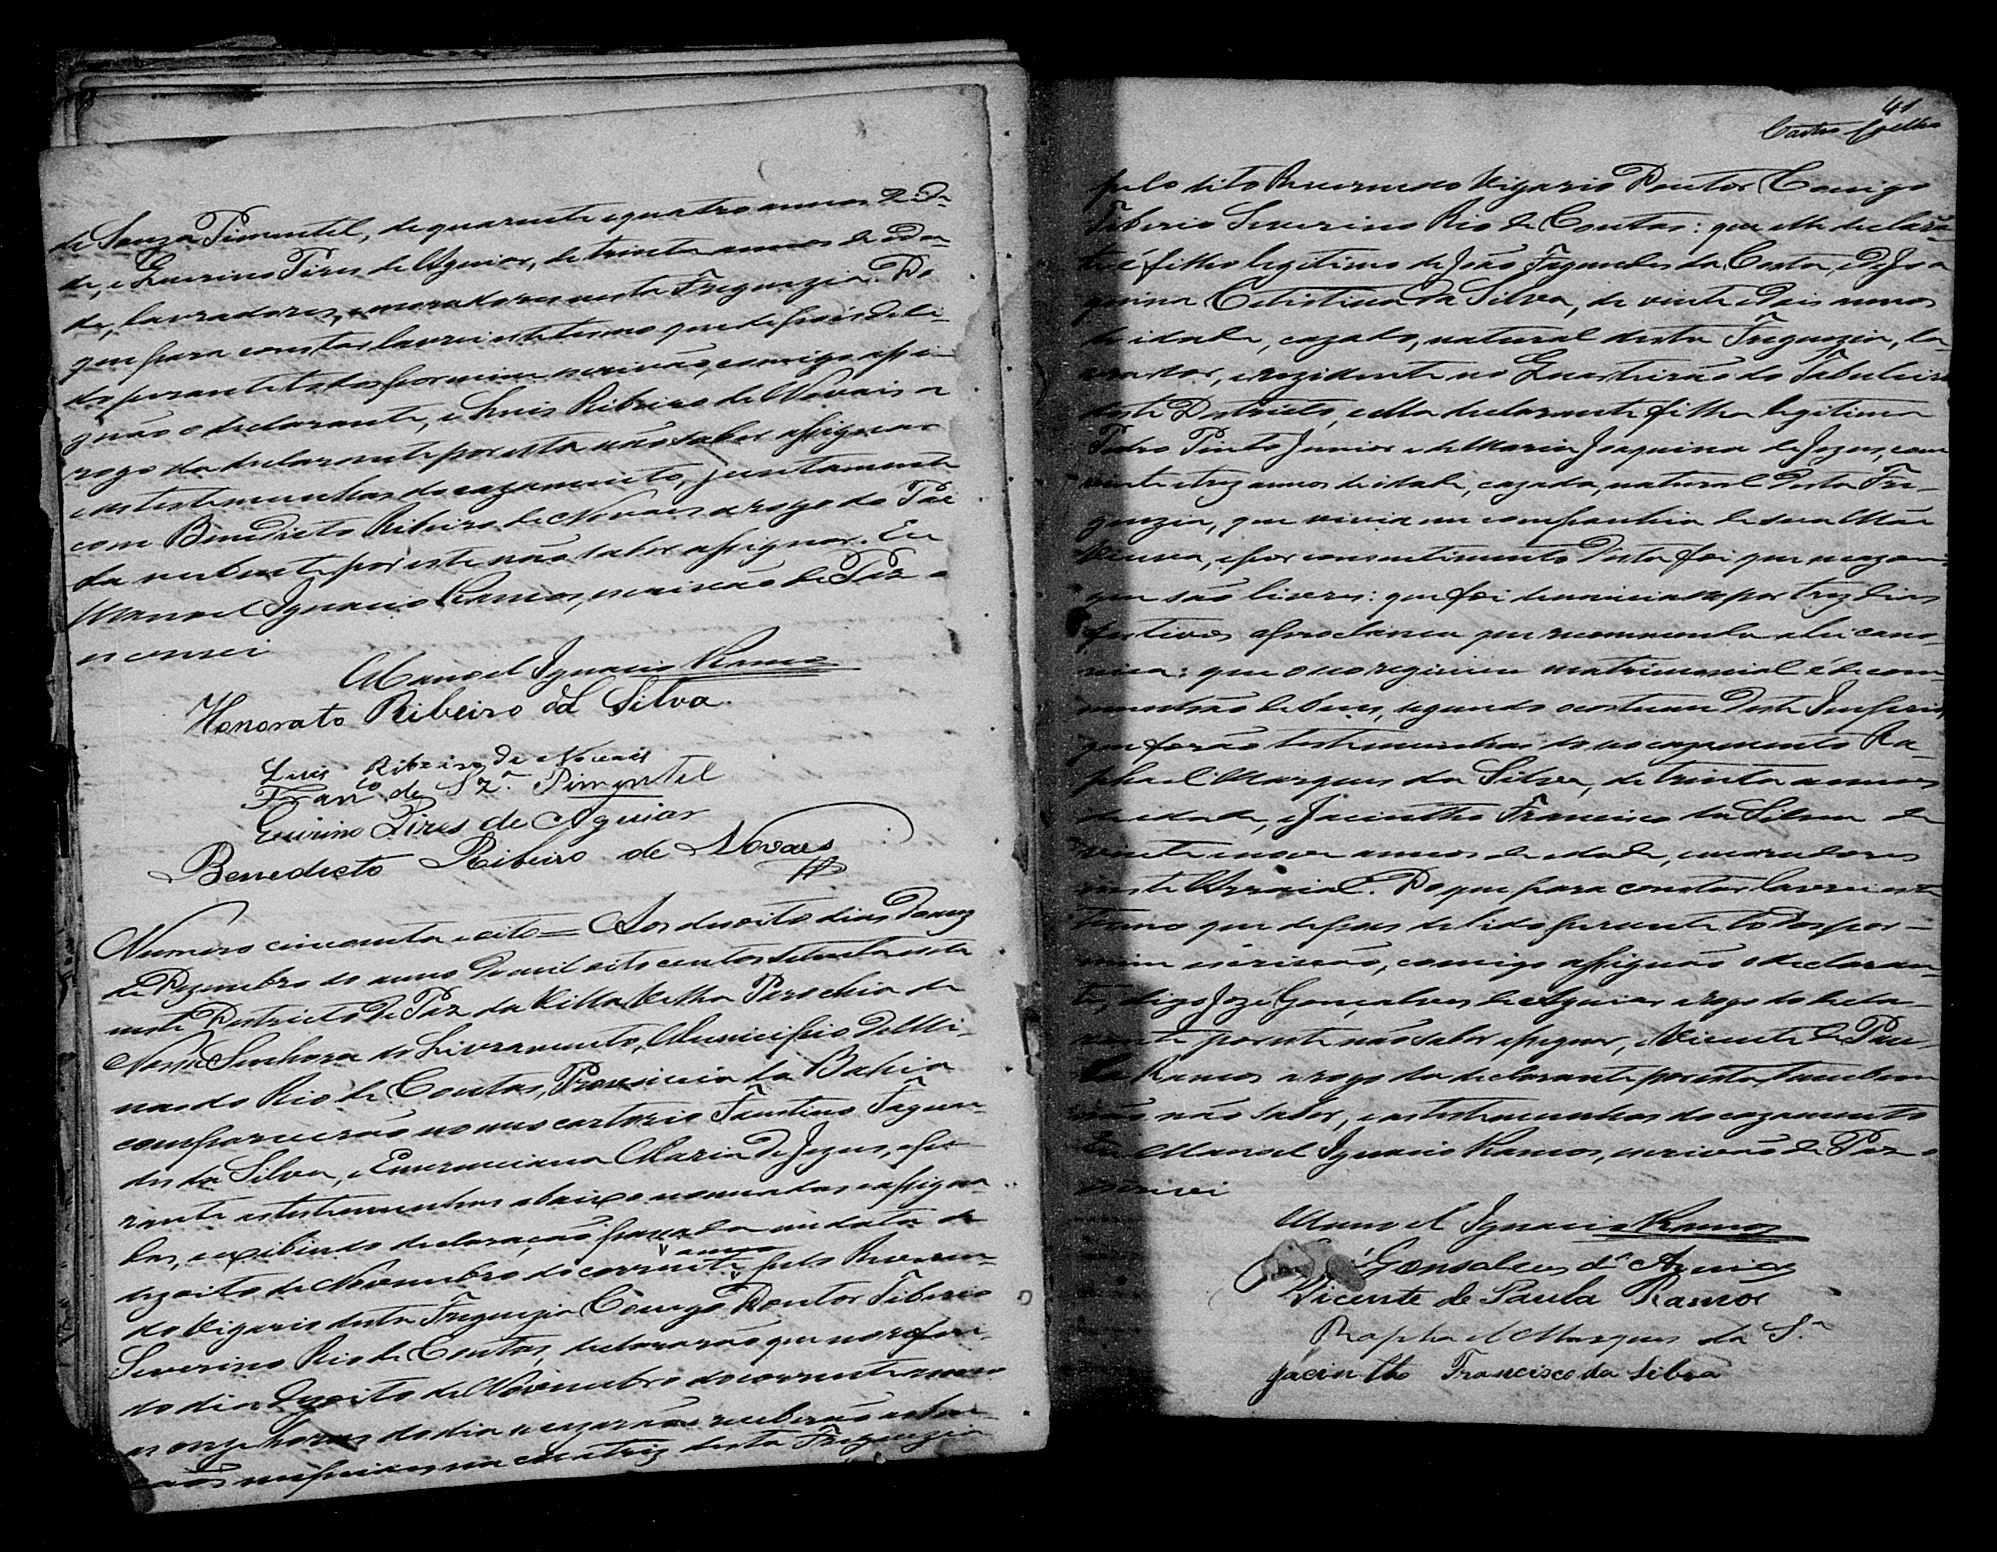 de Souza Pimentel, de quarenta e quatro annos de ida-
de, e Quirino Pires de Aguiar, de trinta annos de ida-
de, lavradores, e moradores nesta Freguezia. Do
que para constar lavrei este termo que depois de li-
do perante todos por mim escrivão, comigo assi-
gnão o declarante, e Luis Ribeiro de Novais a
rogo da declarante por esta não saber assignar
e as testemunhas do cazamento, juntamente
com Benedicto Ribeiro de Novaes a rogo do Pae
da nubente por este não saber assignar. Eu
Manoel Ignacio Ramos, escrivão de Paz o
escrevi
Manoel Ignacio Ramos
Honorato Ribeiro da Silva
Luis Ribeiro de Novais
Franco de Sza Pimentel
Quirino Pires de Aguiar
Benedicto Ribeiro de Novaes
Numero cincoenta e oito = Aos desoito dias do mez
de Dezembro do anno de mil oito centos setenta e
neste Destricto de Paz da Villa Velha Parochia de
Nossa Senhora do Livramento, Municipio de Mi-
nas do Rio de Contas, Provincia da Bahia
comparecerão no meo cartorio Faustino Fagun-
des da Silva, e Emerenciana Maria de Jezus, pe-
rante as testemunhas abaixo nomeadas e assigna-
das, e exibindo declaração passada em data de
dezoito de Novembro do corrente anno pelo Reveren-
do Vigario desta Freguezia Conego Doutor Tiberio
Severino Rio de Contas, declararão que no referi-
do dia dezoito de Novembro do corrente anno
as onze horas do dia se cazarão e receberão as ben-
çãos nupciaes na matriz desta Freguezia
41
Castro Coelho
pelo dito Reverendo Vigario Doutor Conego
Tiberio Severino Rio de Contas: que elle declaran-
te é filho legitimo de João Fagundes da Costa, e de Joa
quina Celestina da Silva, de vinte e dois annos
de idade, cazado, natural desta Freguezia, la-
vrador, e rezidente no Quarteirão do Tabuleiro
deste Destricto, e ella declarante filha legitima
Pedro Pinto Junior e de Maria Joaquina de Jezus, com
vinte e trez annos de idade, cazada, natural desta Fre-
guezia, que vivia em companhia de sua Mãe
viuva, e por consentimento desta foi que se cazou
que são livres: que foi denunciado por trez dias
festivos a proclama que recommenda a lei cano-
nica: que o seo regimen matrimonial é de com-
munhão de bens, segundo o costume deste Imperio,
que forão testemunhas do seo cazamento Ra-
phael Marques da Silva, de trinta annos
de idade, e Jacintho Francisco da Silva de
vinte e nove annos de idade, e moradores
neste Arraial. Do que para constar lavrei este
termo que depois de lido perante todos por
mim escrivão, comigo assignão o declaran-
te, digo Jozé Gonçalves de Aguiar a rogo do decla-
rante por este não saber assignar, e Vicente de Pau-
la Ramos a rogo da declarante por esta tambem
não saber, e as testemunhas do cazamento
Eu Manoel Ignacio Ramos, escrivão de Paz o
escrevi
Manoel Ignacio Ramos
Gonsalves de Aguiar
Vicente de Paula Ramos
Raphael Marques da Sa
Jacintho Francisco da Silva